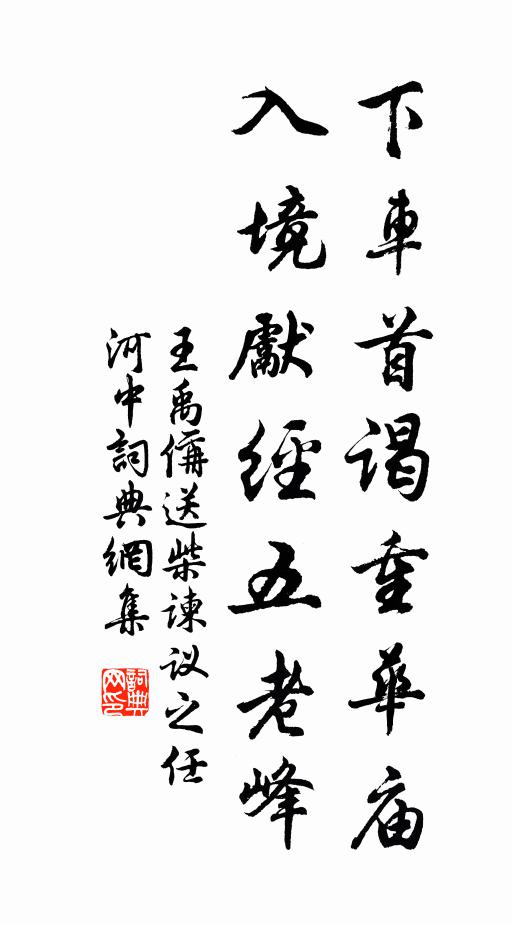 下車首谒重華庙
入境獻經五老峰
王禹偁送柴諫议之任
河中詞典網集
詞典
网印